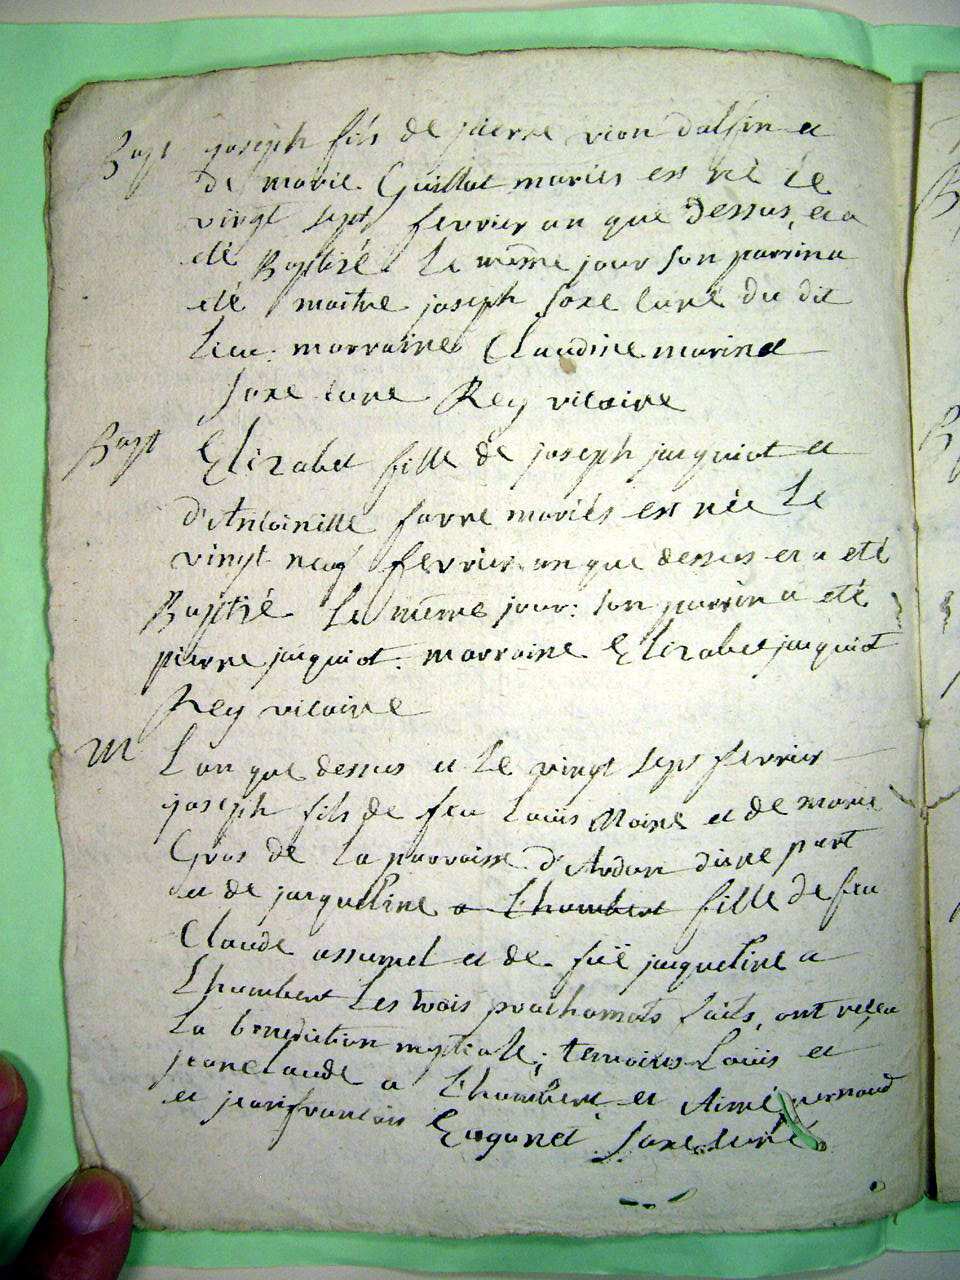 Bapt joseph fils de pierre vion dalfin et
de marie Guillot mariés est né le
vingt sept fevrier an que dessus, et a
été Baptizé le même jour son parrin a
eté maitre joseph Saxe curé du dit
lieu. marraine Claudine marinet
Saxe curé Rey vicaire
Bapt Elizabet fille de joseph jaquiot et
d'Antoinette favre mariés est née le
vingt neuf fevrier an que dessus et a eté
Baptizé le même jour: son parrin a eté
pierre jaquiot. marraine Elizabet jaquiot
Rey vicaire
M L'an que dessus et le vingt sept fevrier
joseph fils de feu Louis Moine et de marie
Gros de la parroisse d'Ardon d'une part
et de jacqueline a Lhambert fille de feu
Claude assumel et de füe jacqueline a
Lhambert les trois prochamats faits, ont reçeu
la benediction nuptiale; temoins Louis et
jeanclaude a Lhambert et Aimé pernoud
et jeanfrancois Saxe curé